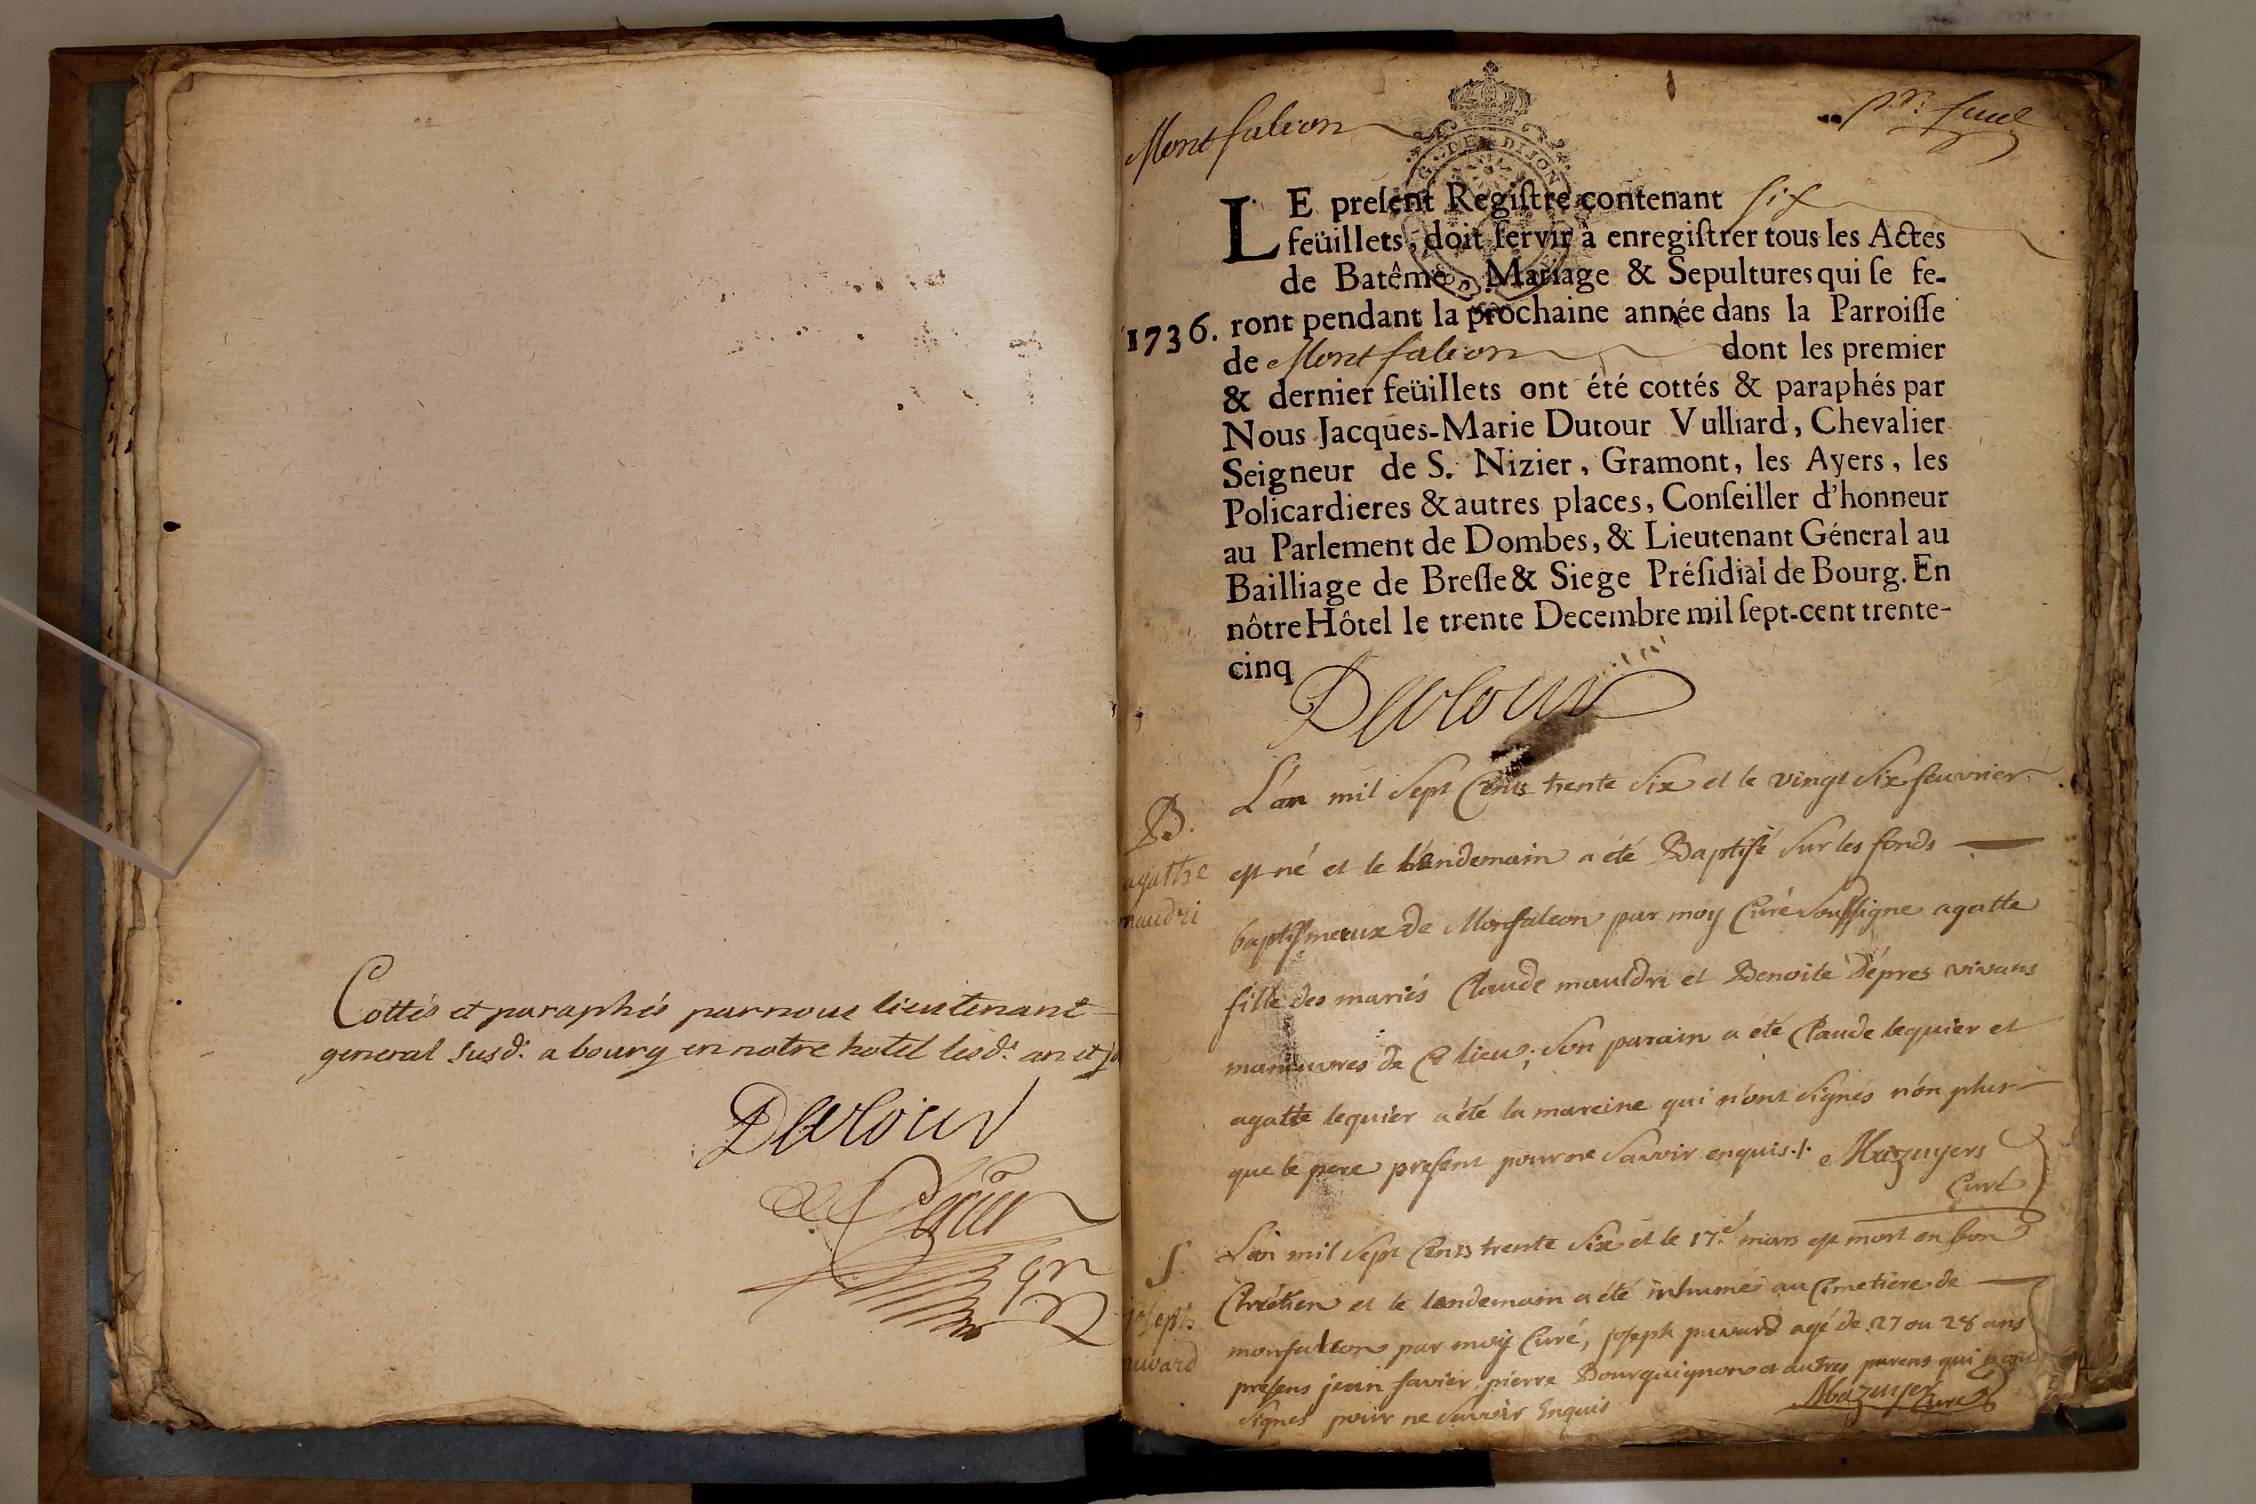 Cottés et paraphés par nous lieutenant
general susd. a bourg en notre hotel lesd. an et jo
Dutour
Montfalcon
pr. feuel
G. DE DIJON
LE preſent Regiſtre contenant six
feüillets, doit ſervir à enregiſtrer tous les Actes
de Batême, Mariage & Sepultures qui ſe fe-
1736. ront pendant la prochaine année dans la Parroiſſe
de Montfalcon dont les premier
& dernier feüillets ont été cottés & paraphés par
Nous Jacques-Marie Dutour Vulliard, Chevalier
Seigneur de S. Nizier, Gramont, les Ayers, les
Policardieres & autres places, Conſeiller d'honneur
au Parlement de Dombes, & Lieutenant Géneral au
Bailliage de Breſſe & Siege Préſidial de Bourg. En
nôtre Hôtel le trente Decembre mil ſept-cent trente-
cinq
Dutour
B.
agathe
maudri
L'an mil sept Cents trente six et le vingt six feuvrier
est né et le lendemain a été Baptisé sur les fonds
baptismeaux de Monfalcon par moy Curé soussigne agatte
fille des mariés Claude mauldri et Benoite Dépres vivans
maneuvres de Ce lieu; son parain a eté Claude lequier et
agatte lequier a été la mareine qui n'ont signés n'on plus
que le pere present pour ne savoir enquis./. Mazuyers
Curé
S.
joseph
puvard
L'an mil sept Cents trente six et le 17e mars est mort en bon
Chrétien et le lendemain a été inhumé au Cimetiere de
monfalcon par moy Curé, joseph puvard agé de 27 ou 28 ans
présens jean favier, pierre Bourguignon et autres parens qui n'ont
signes pour ne savoir Enquis Mazuyer Curé